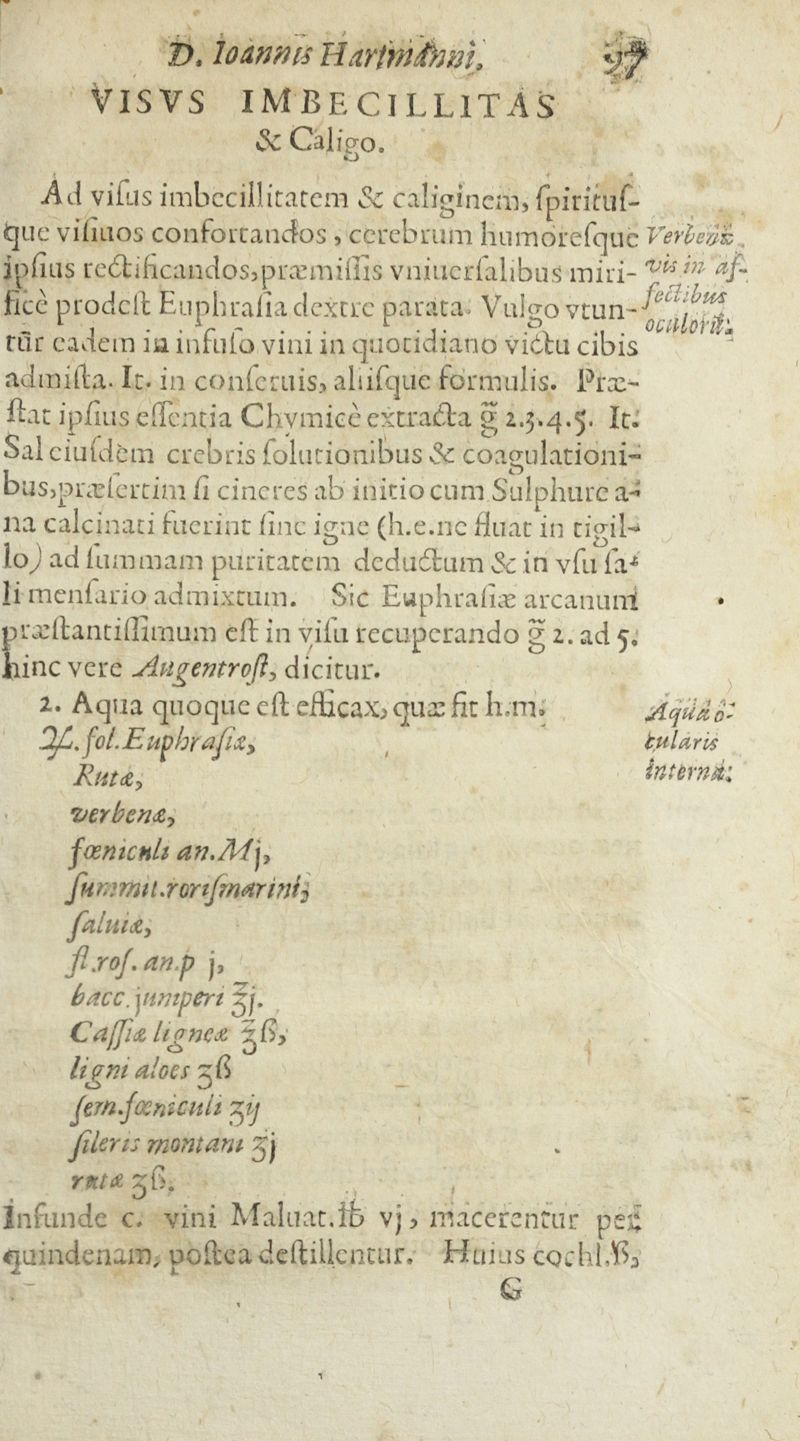 D. Ioannis Hartmanni. 97
VISVS IMBECILLITAS
& Caligo.
Ad viſus imbecillitatem & caliginem, ſpirituſ-
que viſiuos confortandos, cerebrum humoreſque
ipſius rectificandos, præmiſſis vniuerſalibus miri-
ficè prodeſt Euphraſia dextrè parata. Vulgo vtun-
tur eadem in infuſo vini in quotidiano victu cibis
admiſta. It. in conſeruis, aliiſque formulis. Præ-
ſtat ipſius eſſentia Chymicè extracta g̃ 2.3.4.5. It.
Sal eiuſdem crebris ſolutionibus & coagulationi-
bus, præſertim ſi cineres ab initio cum Sulphure a-
na calcinati fuerint ſine igne (h.e. ne fluat in tigil-
lo) ad ſummam puritatem deductum & in vſu ſa-
li menſario admixtum. Sic Euphraſiæ arcanum
præſtantiſſimum eſt in viſu recuperando g̃ 2. ad 5.
hinc vere Augentroſt, dicitur.
Verbenæ
vis in af-
fectibus
oculorū.
2. Aqua quoque eſt efficax, quæ fit h.m.
℞. fol. Euphraſiæ,
Rutæ,
verbenæ,
fœniculi an. Mj,
ſummit. roriſmarini,
ſaluiæ,
fl. roſ. an. p j,
bacc. juniperi ℥j.
Caſſiæ ligneæ ℥ß,
ligni aloes ʒß
ſem. fœniculi ʒij
ſileris montani ʒj
rutæ ʒß.
Aqua o-
cularis
interna.
Infunde c. vini Maluat. ℔ vj, macerentur per
quindenam, poſtea deſtillentur. Huius cochl.ß,
G